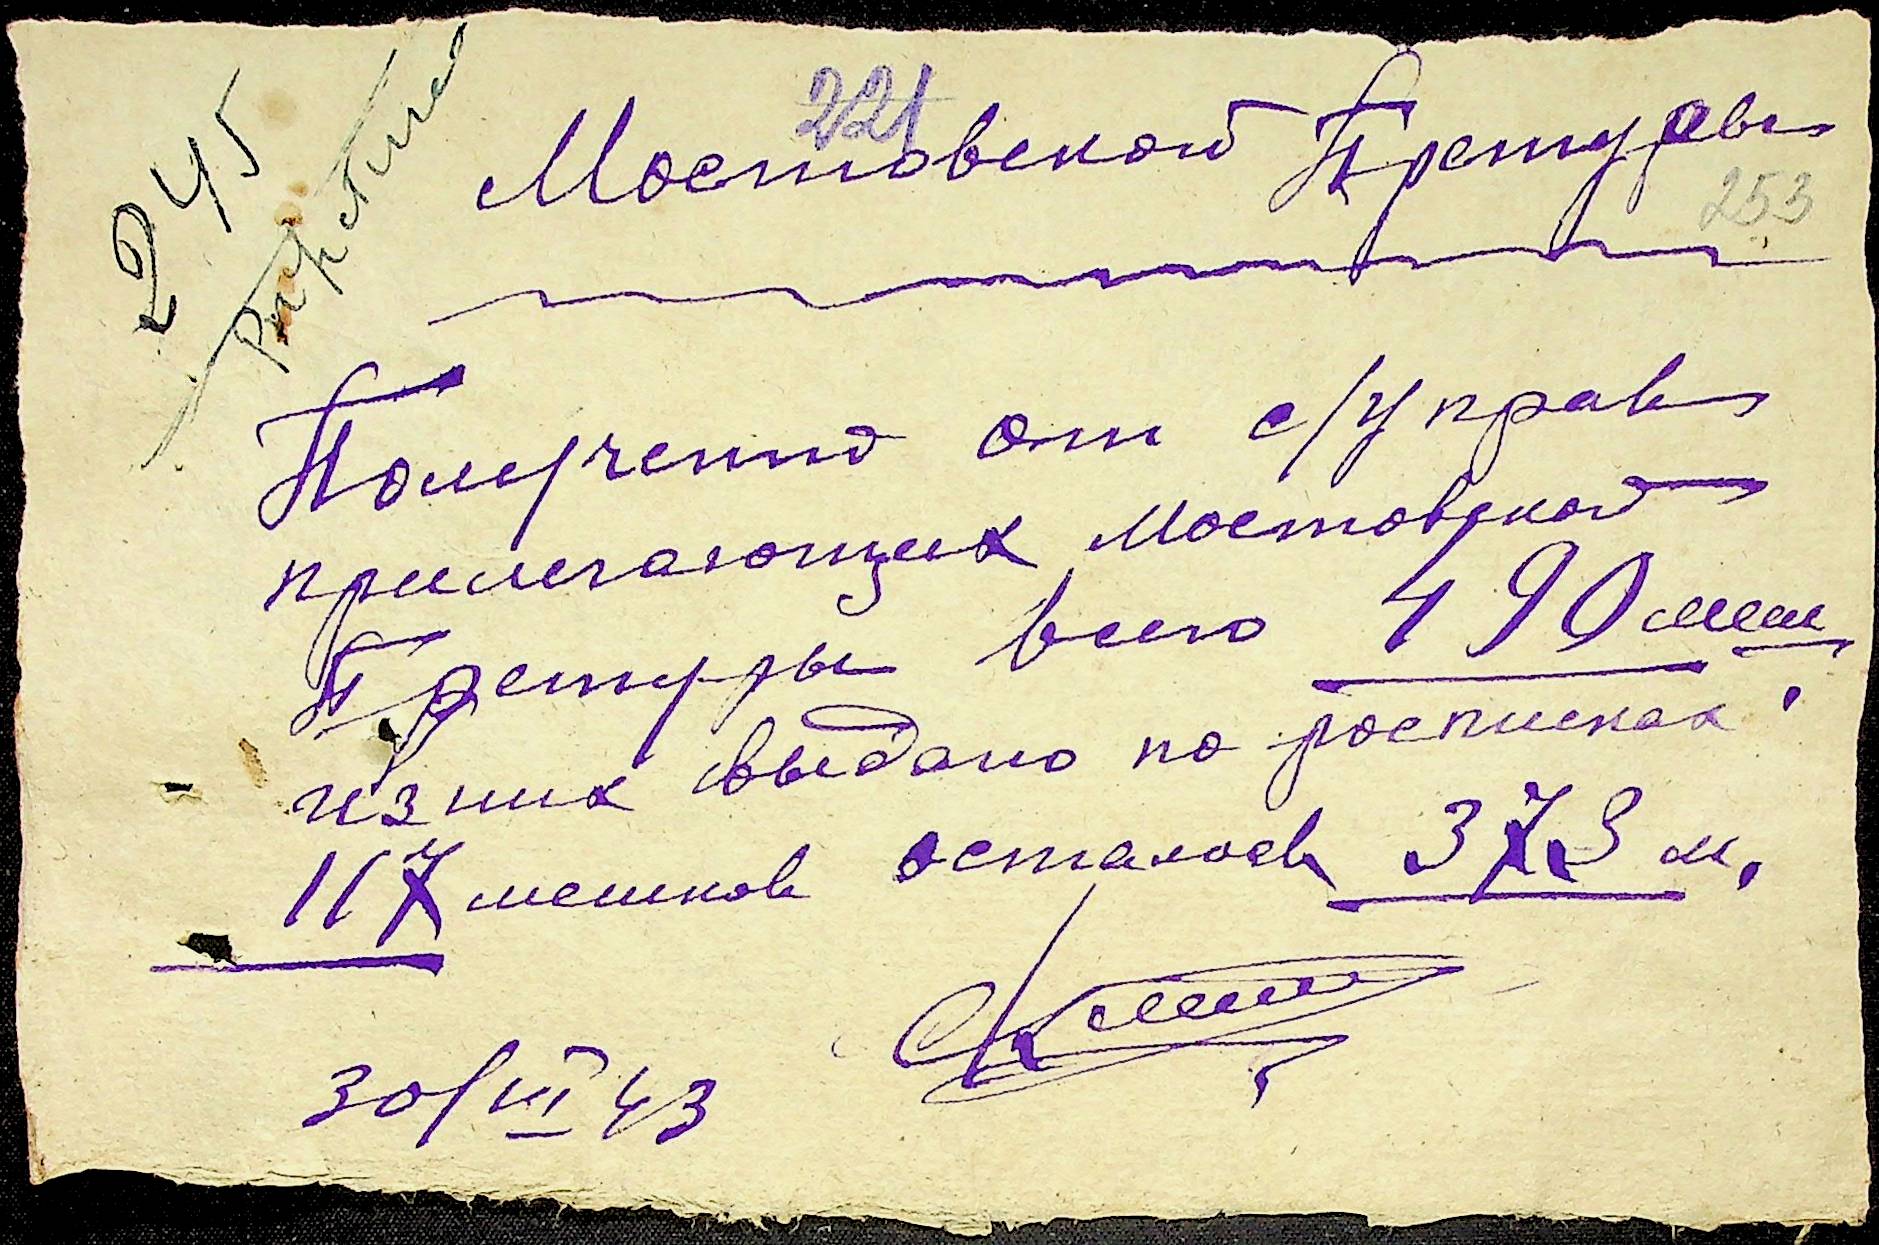 245
221
Мостовской Претуры
253
Полученно от с/управ
прилегающих Мостовской
Претуры всего 490 меш
из них выдано по росписках
117 мешков осталось 373 м.
30/III 43